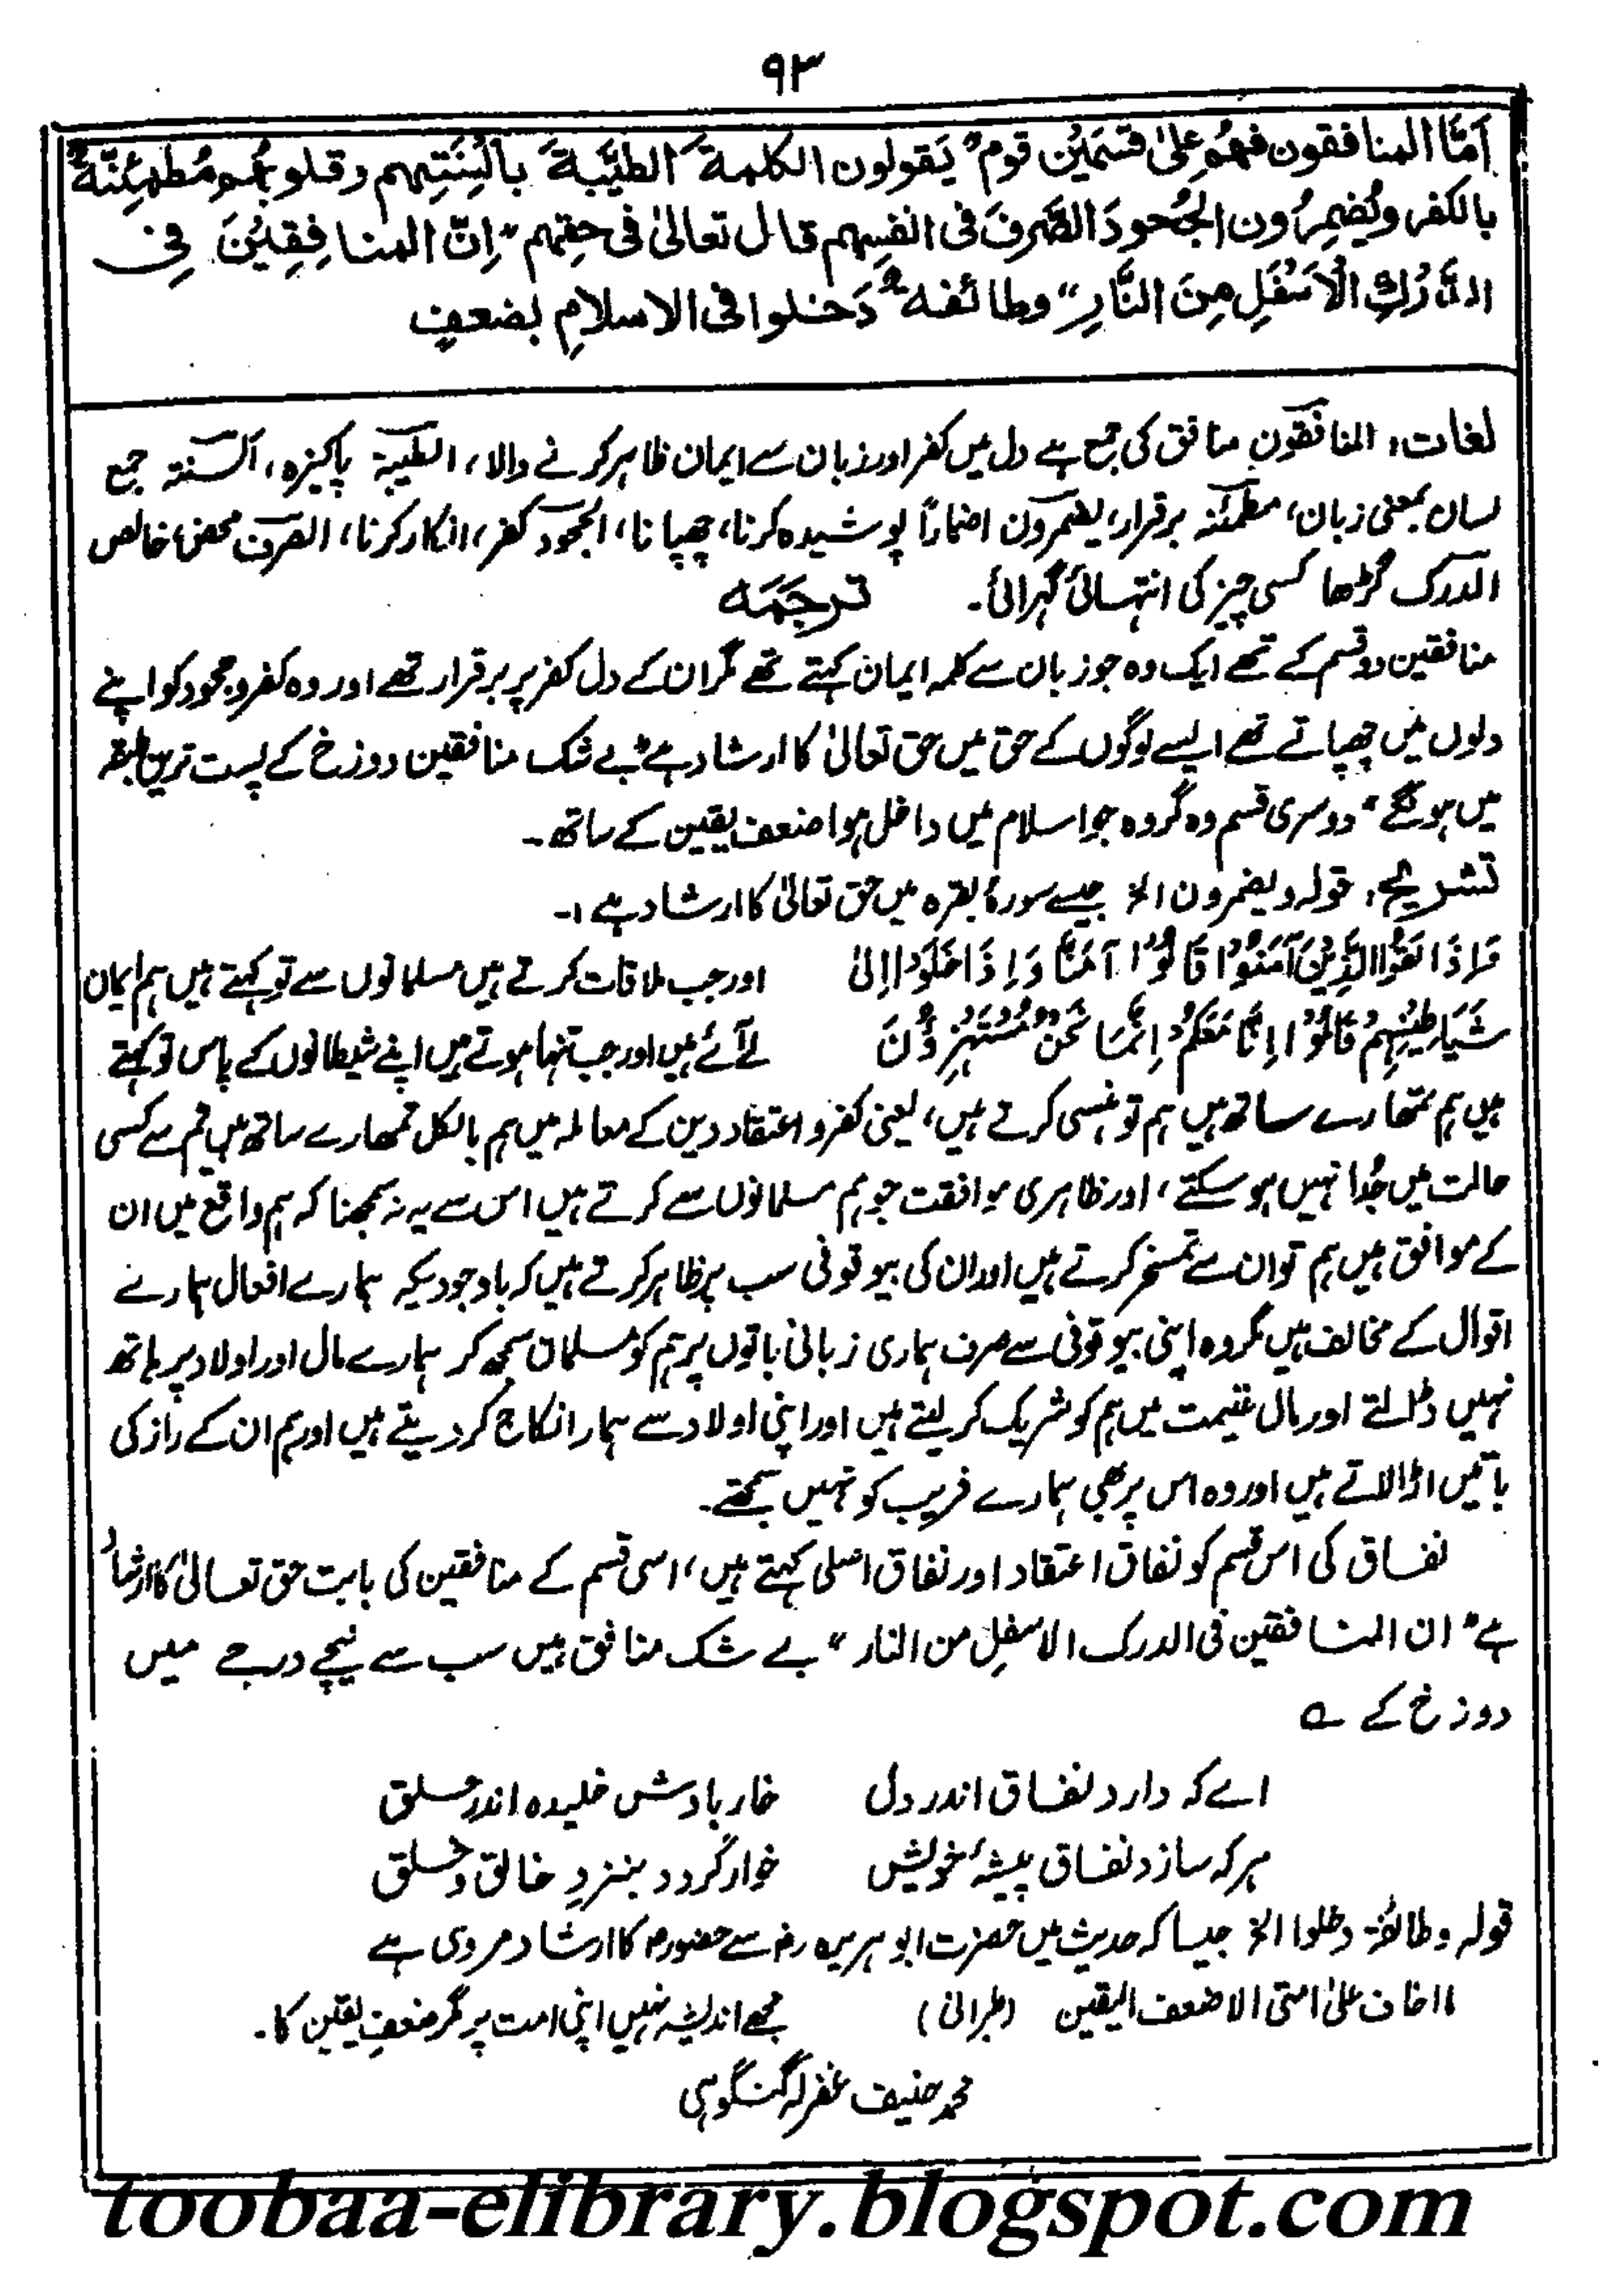 ۹۳
اَمَّا المنافقون فهُم علىٰ قسمَيْن قومٌ يَقولون الكلمةَ الطيّبةَ بالْسِنَتِهم وقلوبُهم مُطمئِنّةٌ
بالكفر ويُضمِرُون الجُحودَ الصَّرِفَ فی انفسِهم قال تعالیٰ فی حقِهم "اِنّ المنافِقِيْنَ فِی
الدَّرْكِ الْاَسْفَلِ مِنَ النَّارِ" وطائفةٌ دَخلوا فی الاسلامِ بضعفٍ
لغات: المنافقون منافق کی جمع ہے دل میں کفر اور زبان سے ایمان ظاہر کرنے والا، الطیبۃ پاکیزہ، السنۃ جمع
لسان بمعنی زبان، مطمئنۃ برقرار، یضمرون اضماراً پوشیدہ کرنا، چھپانا، الجحود کفر، انکار کرنا، الصرف محض، خالص
الدرک گڑھا کسی چیز کی انتہائی گہرائی۔ ترجَمَہ
منافقین دو قسم کے تھے ایک وہ جو زبان سے کلمہ ایمان کہتے تھے مگر ان کے دل کفر پر برقرار تھے اور وہ کفر و جحود کو اپنے
دلوں میں چھپاتے تھے ایسے لوگوں کے حق میں حق تعالیٰ کا ارشاد ہے "بے شک منافقین دوزخ کے پست ترین طبقہ
میں ہونگے" دوسری قسم وہ گروہ جو اسلام میں داخل ہوا ضعف یقین کے ساتھ۔
تشریح: قولہ ویضمرون الخ جیسے سورۂ بقرہ میں حق تعالیٰ کا ارشاد ہے :۔
وَاِذَا لَقُوا الَّذِيْنَ آمَنُوْا قَالُوْا آمَنَّا وَاِذَا خَلَوْا اِلیٰ اور جب ملاقات کرتے ہیں مسلمانوں سے تو کہتے ہیں ہم ایمان
شَيَاطِيْنِهِمْ قَالُوْا اِنَّا مَعَكُمْ اِنَّمَا نَحْنُ مُسْتَهْزِؤُنَ لے آئے ہیں اور جب تنہا ہوتے ہیں اپنے شیطانوں کے پاس تو کہتے
ہیں ہم تمھارے ساتھ ہیں ہم تو ہنسی کرتے ہیں، یعنی کفر و اعتقاد دین کے معاملہ میں ہم بالکل تمھارے ساتھ ہیں تم سے کسی
حالت میں جُدا نہیں ہو سکتے، اور ظاہری موافقت جو ہم مسلمانوں سے کرتے ہیں اس سے یہ نہ سمجھنا کہ ہم واقع میں ان
کے موافق ہیں ہم تو ان سے تمسخر کرتے ہیں اور ان کی بیوقوفی سب پر ظاہر کرتے ہیں کہ باوجودیکہ ہمارے افعال ہمارے
اقوال کے مخالف ہیں مگر وہ اپنی بیوقوفی سے صرف ہماری زبانی باتوں پر ہم کو مسلمان سمجھ کر ہمارے مال اور اولاد پر ہاتھ
نہیں ڈالتے اور مال غنیمت میں ہم کو شریک کر لیتے ہیں اور اپنی اولاد سے ہمارا نکاح کر دیتے ہیں اور ہم ان کے راز کی
باتیں اڑا لاتے ہیں اور وہ اس پر بھی ہمارے فریب کو نہیں سمجھتے۔
نفاق کی اس قسم کو نفاق اعتقاد اور نفاق اصلی کہتے ہیں، اسی قسم کے منافقین کی بابت حق تعالیٰ کا ارشاد
ہے "ان المنافقین فی الدرک الاسفلِ من النار" بے شک منافق ہیں سب سے نیچے درجے میں
دوزخ کے ؎
اے کہ دارد نفاق اندر دل خار بادش خلیدہ اندر حلق
ہر کہ سازد نفاق پیشۂ خویش خوار گردد بنزدِ خالق و خلق
قولہ وطائفۃ دخلوا الخ جیسا کہ حدیث میں حضرت ابوہریرہ رض سے حضور ص کا ارشاد مروی ہے
ما اخاف علیٰ امتی الا ضعف الیقین (طبرانی) مجھے اندیشہ نہیں اپنی امت پر مگر ضعفِ یقین کا۔
محمد حنیف غفرلہ گنگوہی
toobaa-elibrary.blogspot.com